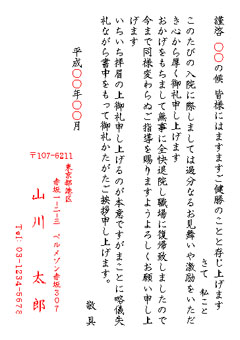 謹啓 〇〇の候 皆様にはますますご健勝のことと存じ上げます
さて 私こと
このたびの入院に際しましては過分なるお見舞いや激励をいただ
き心から厚く御礼申し上げます
おかげをもちまして無事に全快退院し職場に復帰致しましたので
今まで同様変わらぬご指導を賜りますようよろしくお願い申し上
げます
いちいち拝眉の上御礼申し上げるのが本意ですがまことに略儀失
礼ながら書中をもって御礼かたがたご挨拶申し上げます。
敬具
平成〇〇年〇〇月
〒107-6211
東京都港区
赤坂１-１-１ ベルメゾン赤坂３０７
山川 太郎
Tel: 03-1234-5678